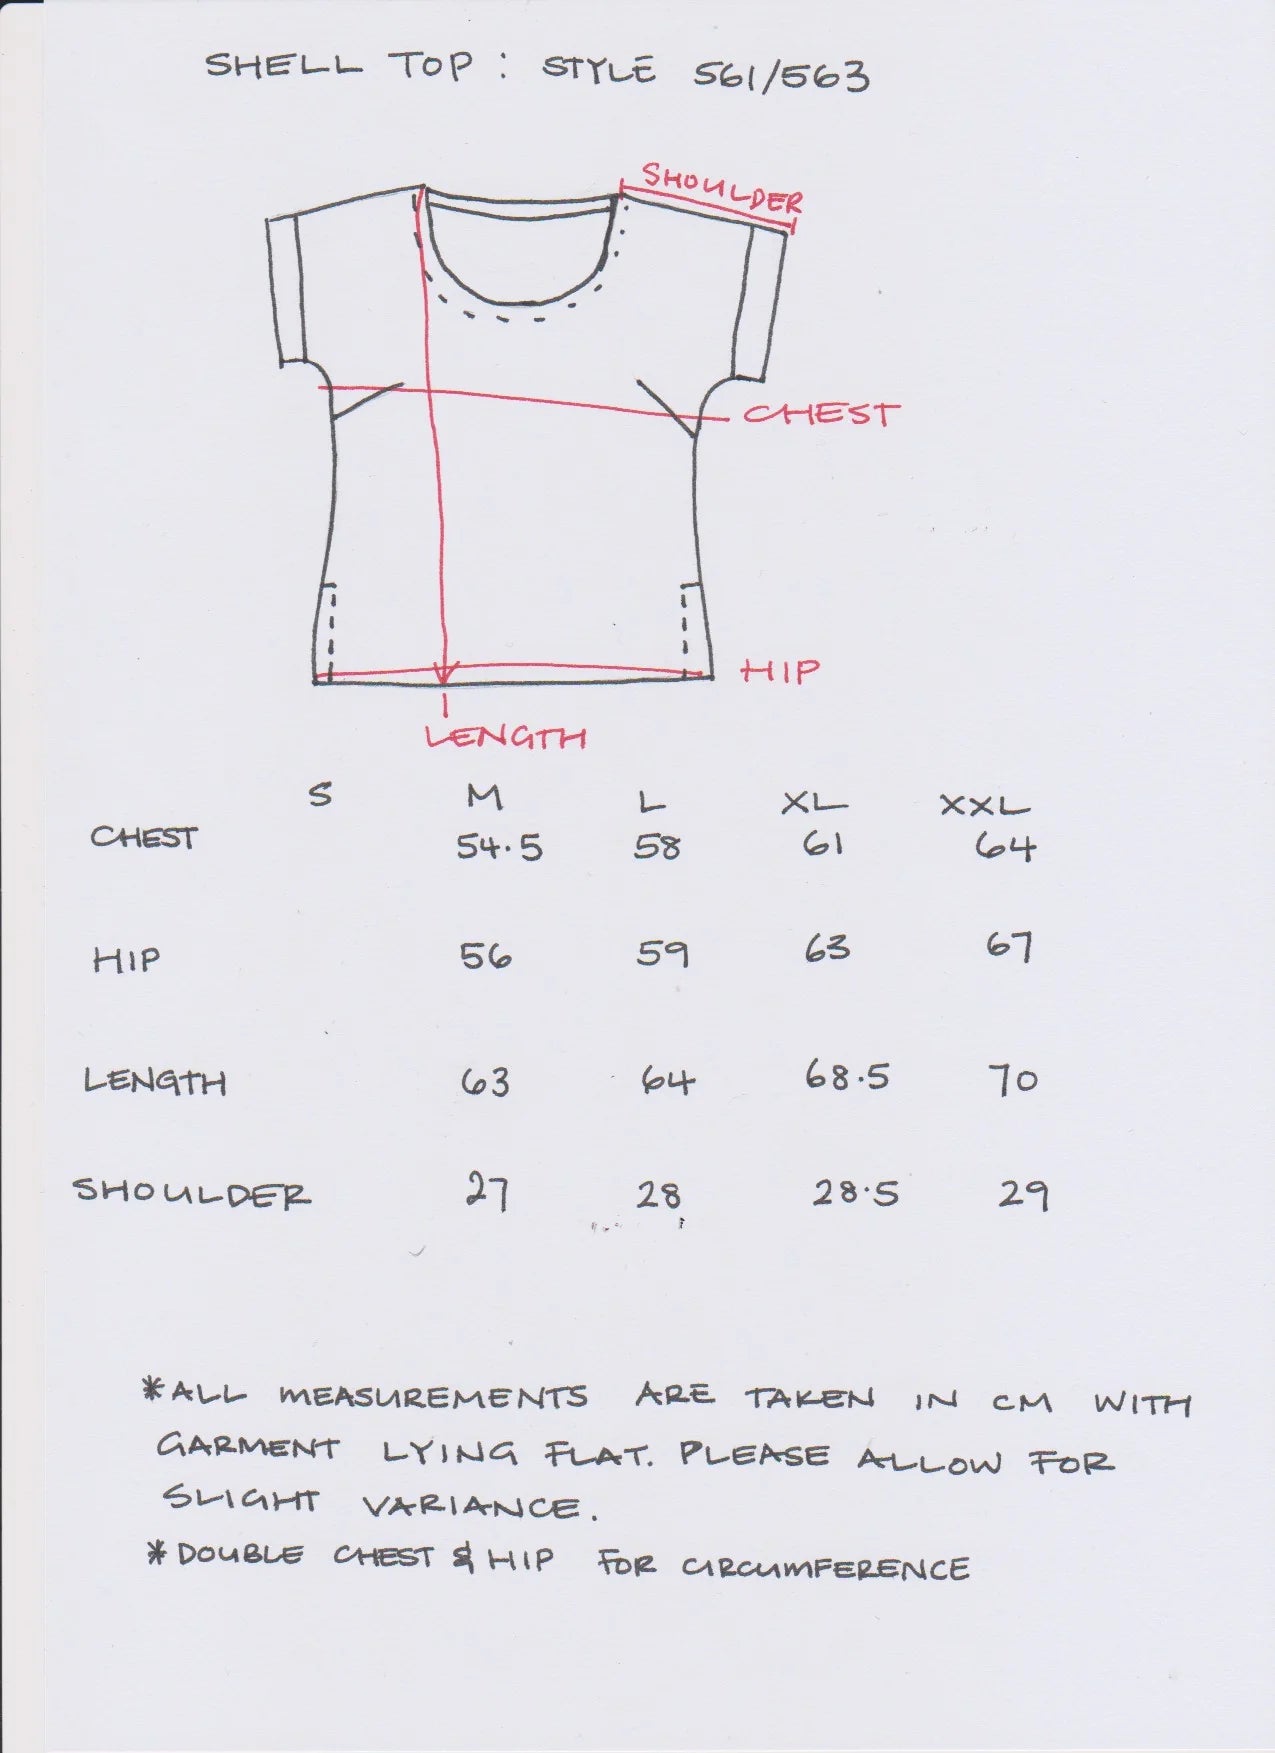 SHELL TOP : STYLE 561/563
SHOULDER
CHEST
HIP
LENGTH
S M L XL XXL
CHEST 54.5 58 61 64
HIP 56 59 63 67
LENGTH 63 64 68.5 70
SHOULDER 27 28 28.5 29
*ALL MEASUREMENTS ARE TAKEN IN CM WITH
GARMENT LYING FLAT. PLEASE ALLOW FOR
SLIGHT VARIANCE.
*DOUBLE CHEST & HIP FOR CIRCUMFERENCE